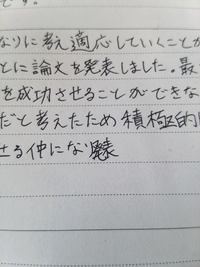 です。
なりに考え適応していくことが
とに論文を発表しました。最
を成功させることができな
だと考えたため積極的
せる仲になり発表